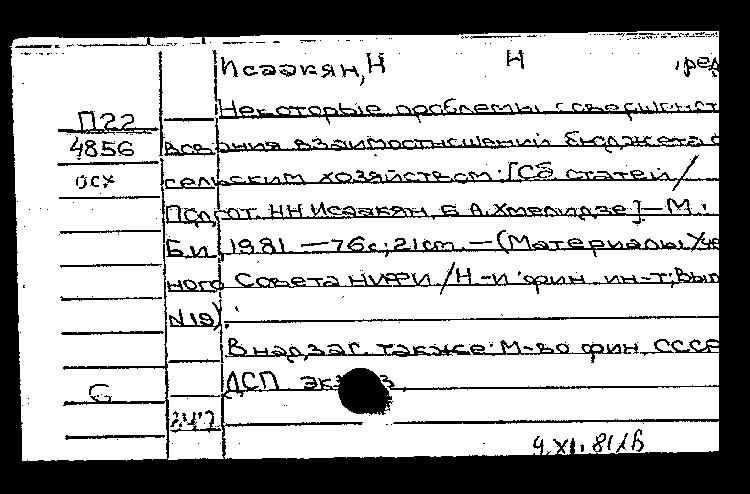 Исаакян, Н Н , ред
П22 Некоторые проблемы совершенст
4856 вования взаимоотношений бюджета с
осх сельским хозяйством: [Сб статей /
Подгот. Н Н Исаакян, Б А. Хмелидзе] — М.:
Б.и, 1981 — 76с; 21см. — (Материалы Уче
ного Совета НИФИ / Н.-и фин. ин-т; Вып
N 19).
В надзаг. также: М-во фин. СССР
6 ДСП
347
9.XI.81